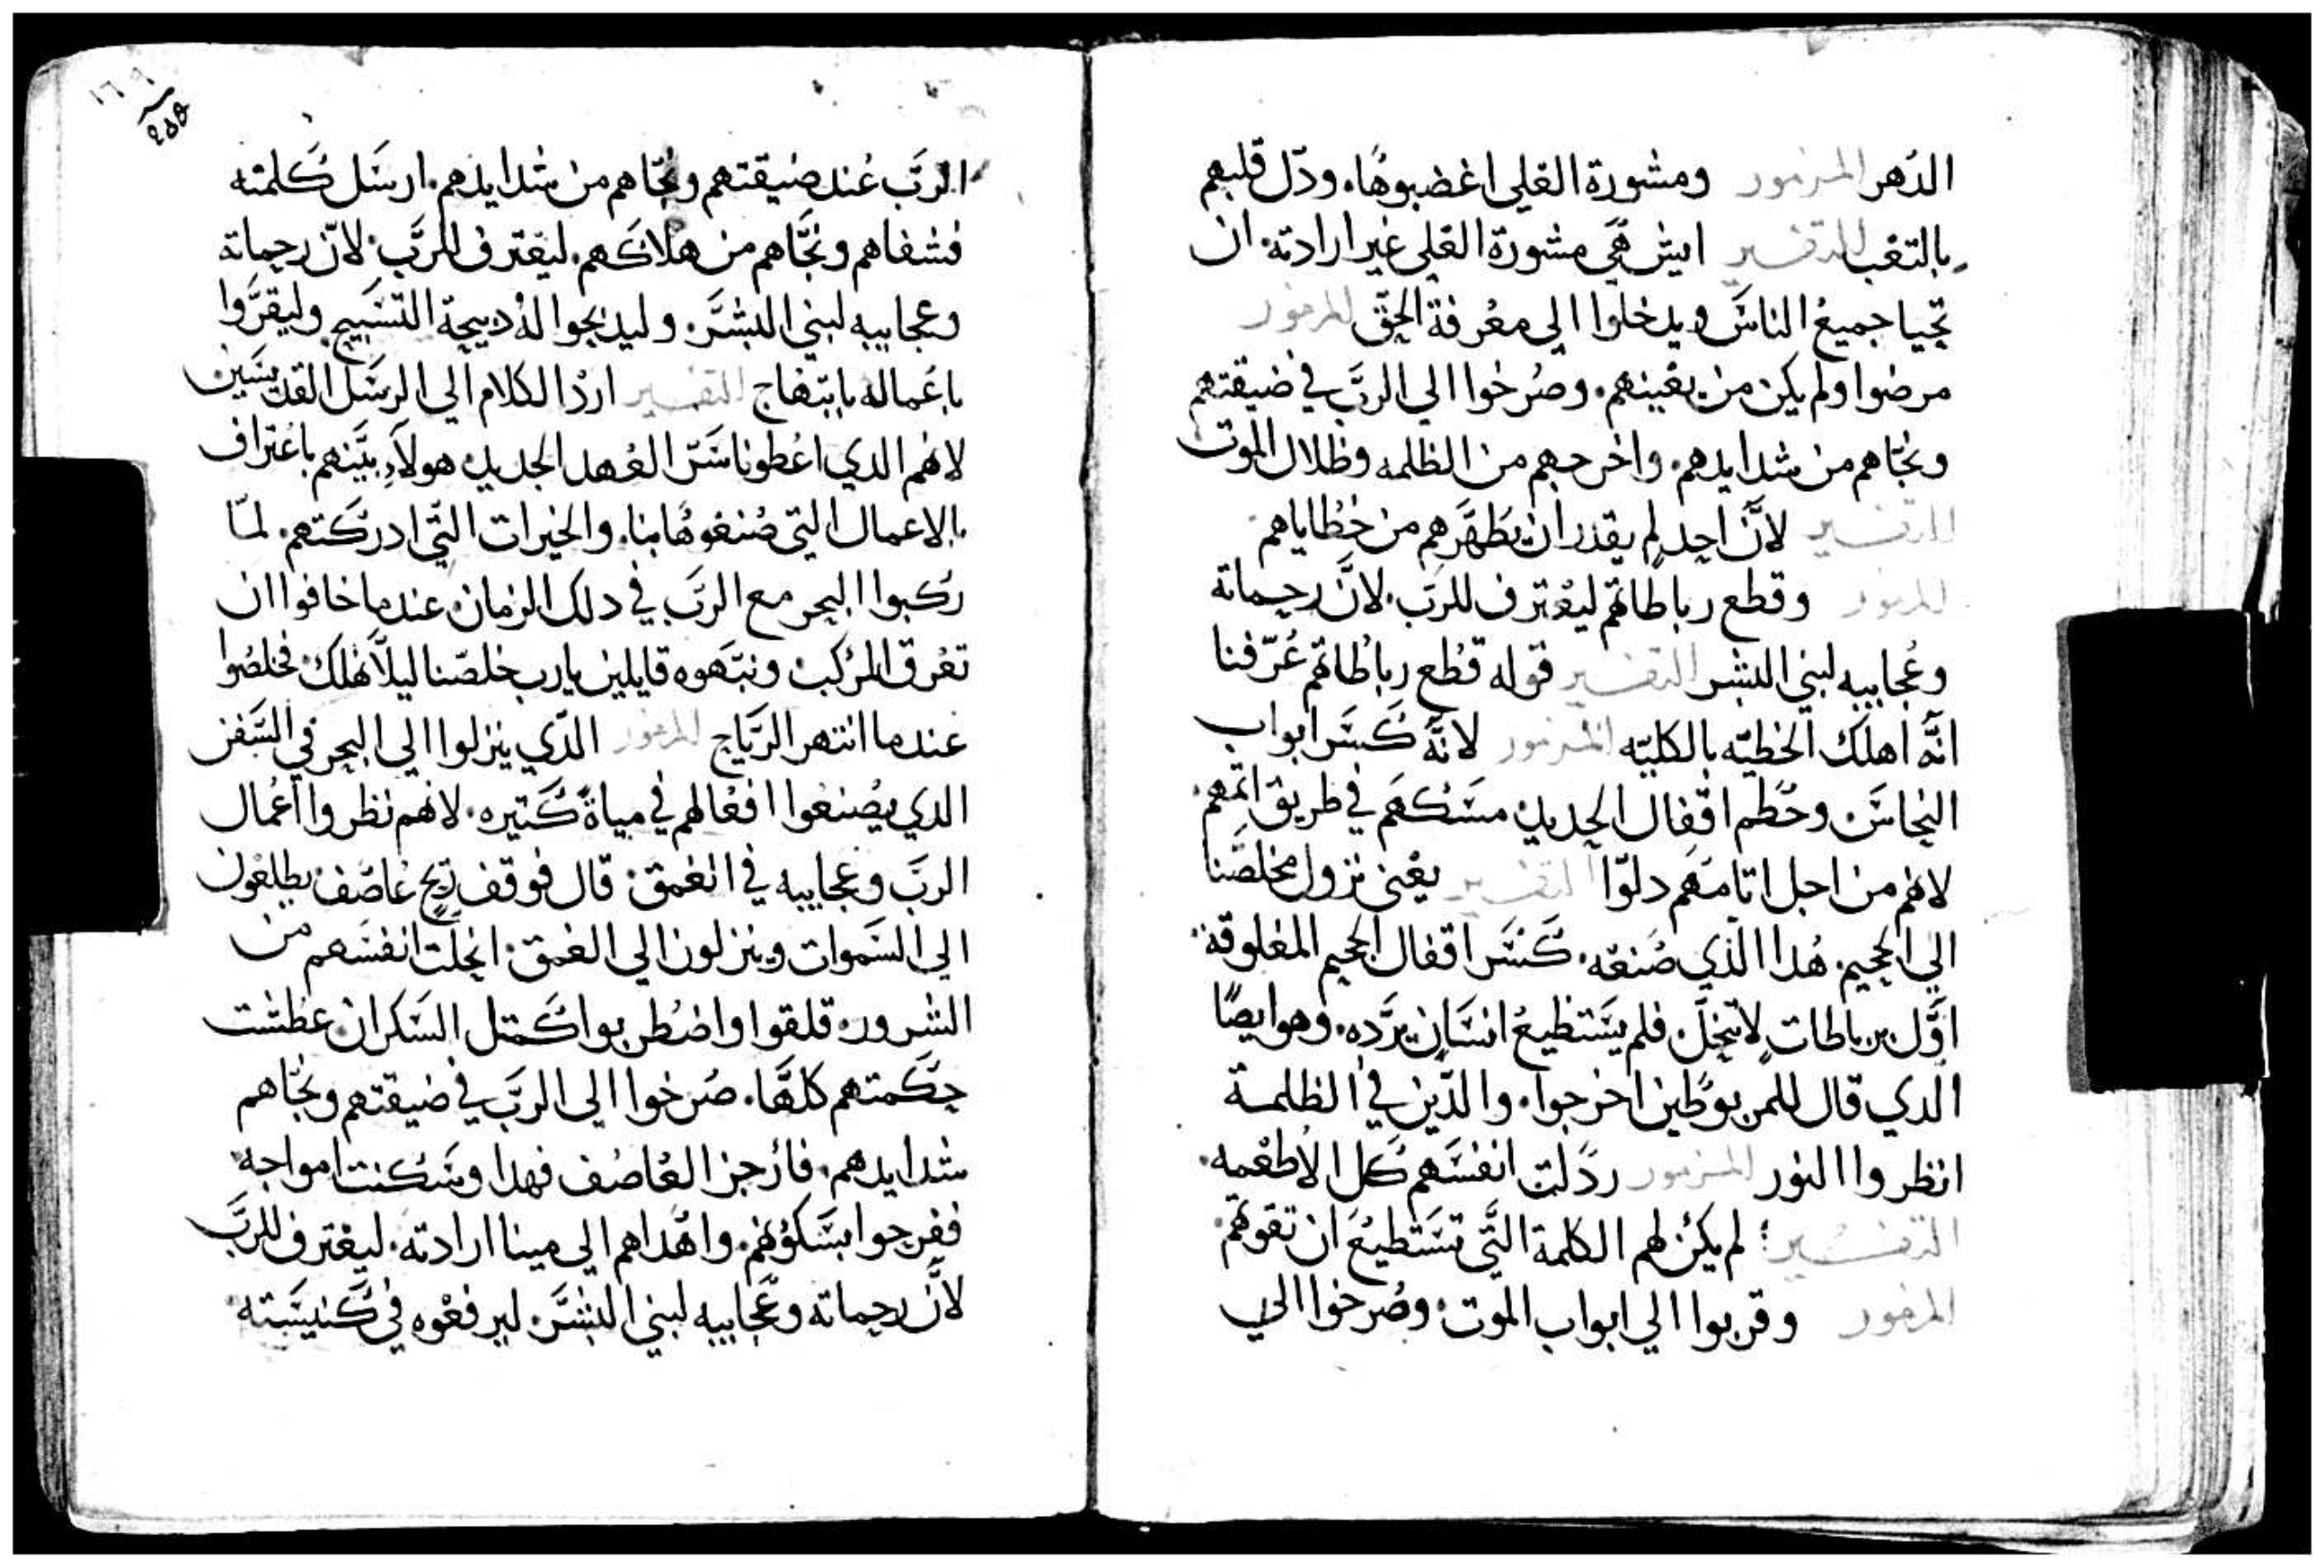 الدهر المزمور ومشورة العلي اغضبوها. ودل قلبهم
بالتعب التفسير ايش هي مشورة العلي غير ارادته. ان
تحيا جميع الناس ويدخلوا الي معرفة الحق المزمور
مرضوا ولم يكن من يعينهم. وصرخوا الي الرب في ضيقتهم
ونجاهم من شدايدهم. واخرجهم من الظلمه وظلال الموت
التفسير لان احد لم يقدر ان يطهرهم من خطاياهم
المزمور وقطع رباطاتهم ليعترف للرب. لان رحماته
وعجايبه لبني البشر التفسير قوله قطع رباطاتهم عرفنا
انه اهلك الخطيه بالكليه المزمور لانه كسر ابواب
النحاس وحطم اقفال الحديد مسكهم في طريق اتمهم.
لانهم من اجل اتامهم دلوا التفسير يعني نزول مخلصنا
الي الجحيم. هدا الدي صنعه. كسر اقفال الجحيم المغلوقة
اول برباطات لا تنحل فلم يستطيع انسان يرده. وهو ايضا
الدي قال للمربوطين اخرجوا. والدين في الظلمة
انظروا النور المزمور ردلت انفسهم كل الاطعمه.
التفسير لم يكن لهم الكلمة التي تستطيع ان تقوتهم
المزمور وقربوا الي ابواب الموت وصرخوا الي
٢٥٥
الرب عند ضيقتهم ونجاهم من شدايدهم. ارسل كلمته
فشفاهم ونجاهم من هلاكهم. ليعترف للرب لان رحماته
وعجايبه لبني البشر. وليدبحوا له دبيحة التسبيح وليقروا
باعماله بابتهاج التفسير ارد الكلام الي الرسل القديسين
لانهم الدي اعطونا سر العهد الجديد هولاء بينهم باعتراف
بالاعمال التي صنعوها بنا. والخيرات التي ادركتهم. لما
ركبوا البحر مع الرب في دلك الزمان عندما خافوا ان
تغرق المركب ونبهوه قايلين يارب خلصنا ليلا نهلك فخلصوا
عندما انتهر الرياح المزمور الدي ينزلوا الي البحر في السفن
الدي يصنعوا افعالهم في مياة كتيره. لانهم نظروا اعمال
الرب وعجايبه في الغمق قال فوقف ريح عاصف يطلعون
الي السموات وينزلون الي الغمق انحلت انفسهم من
الشرور قلقوا واضطربوا كمتل السكران عطشت
حكمتهم كلها. صرخوا الي الرب في ضيقتهم ونجاهم
شدايدهم. فازجز العاصف فهدا وسكنت امواجه
ففرحوا بسكونهم. واهداهم الي مينا ارادته. ليعترف للرب
لان رحماته وعجايبه لبني البشر. ليرفعوه في كنيسته